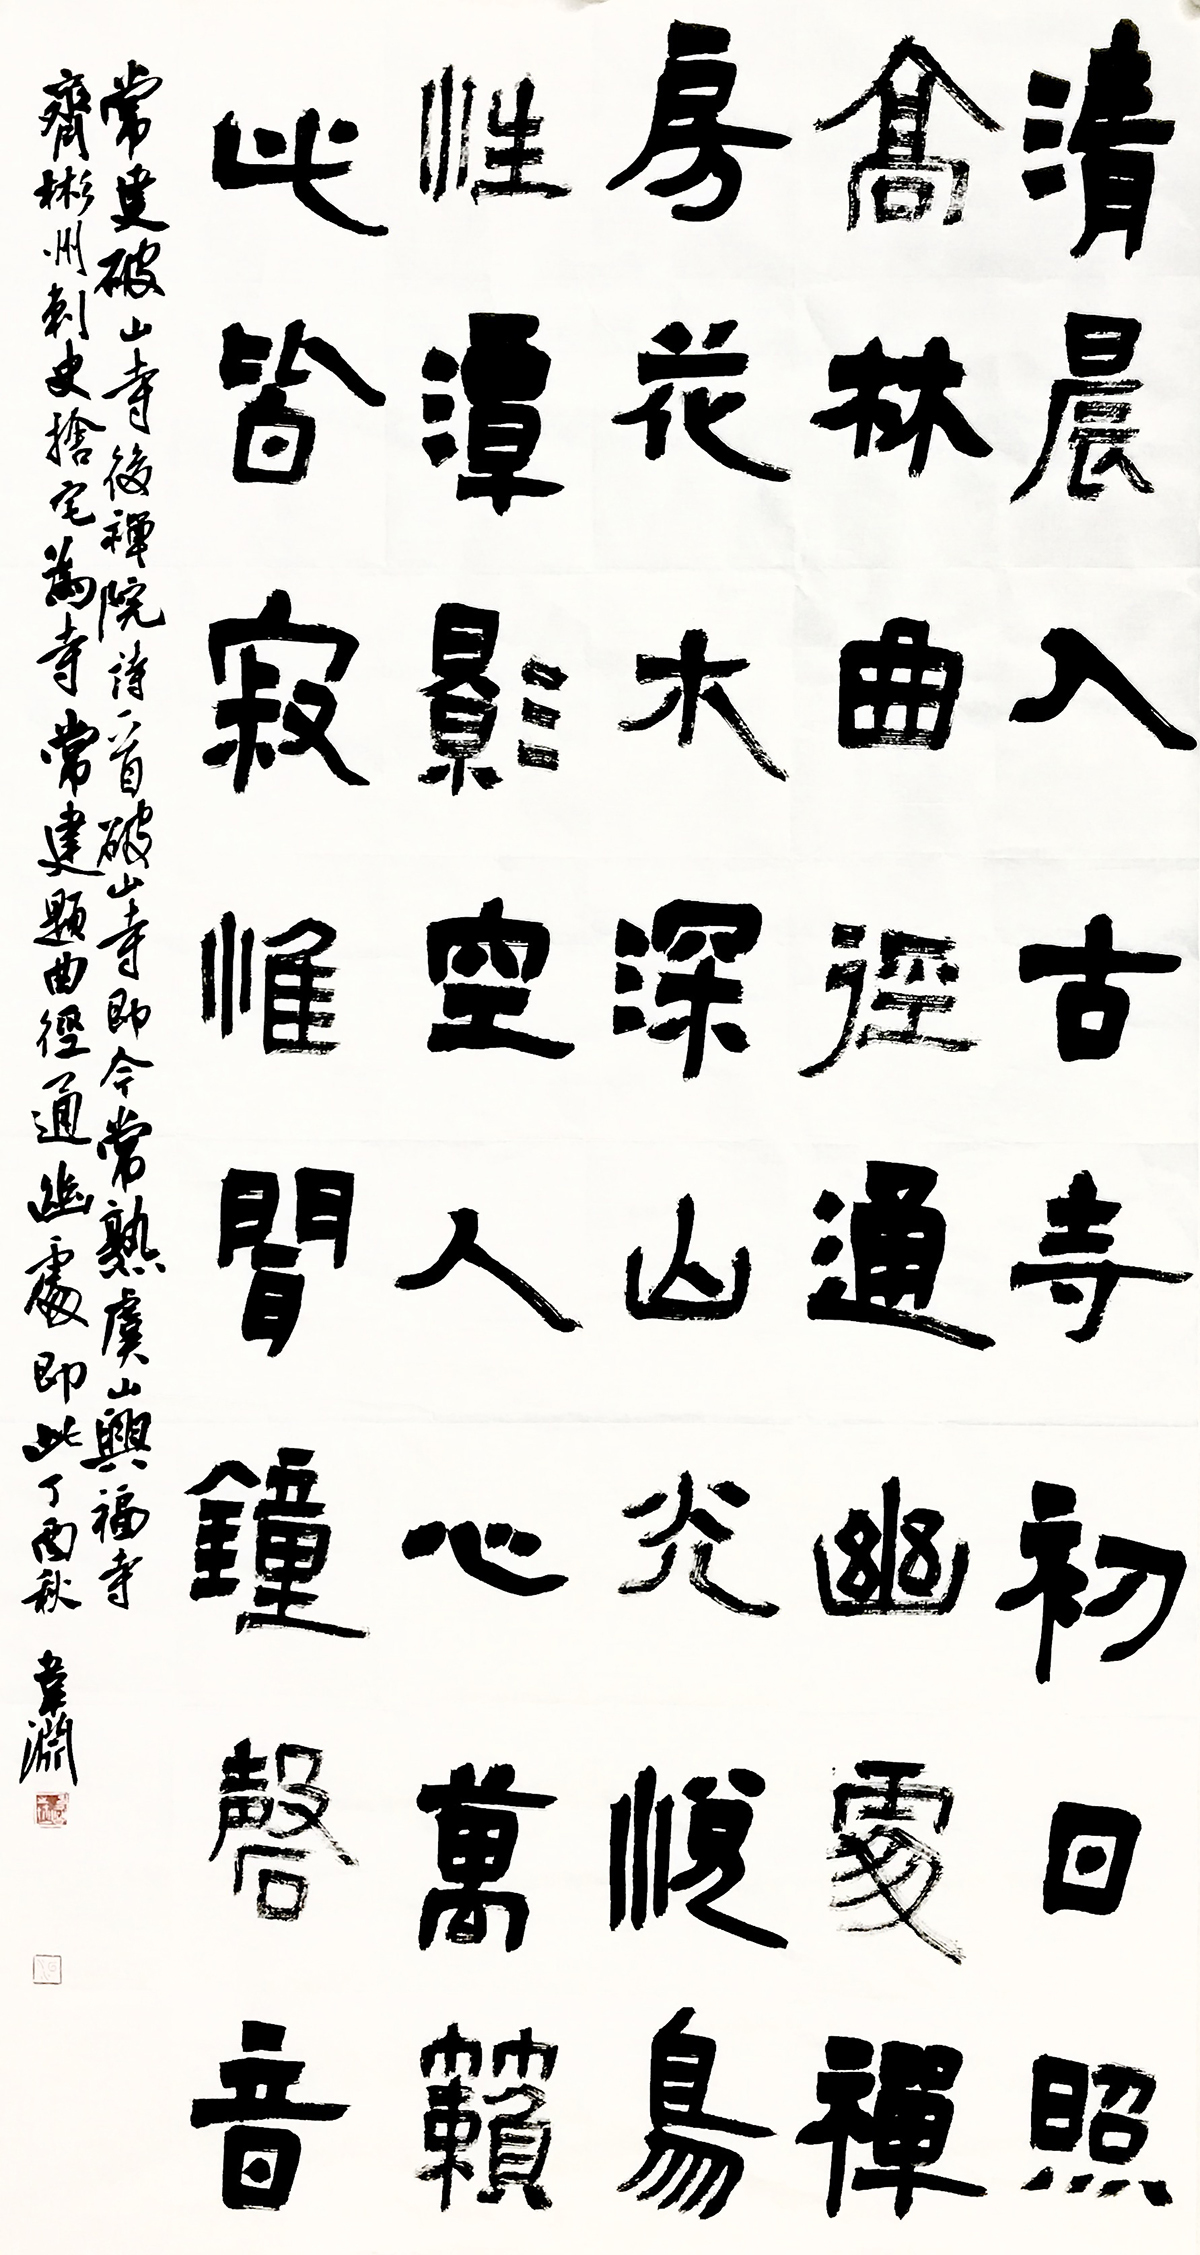 清晨入古寺初日照
高林曲徑通幽處禪
房花木深山光悅鳥
性潭影空人心萬籟
此皆寂惟聞鐘磬音
常建破山寺後禪院詩一首破山寺即今常熟虞山興福寺
齊彬州刺史捨宅為寺常建題曲徑通幽處即此丁酉秋